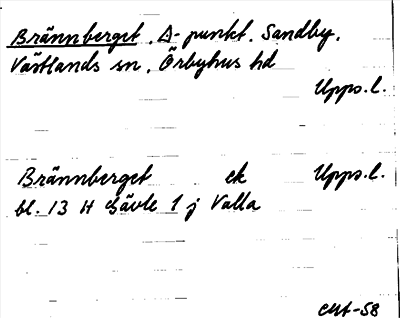 Brännberget, Δ-punkt. Sandby,
Västlands sn, Örbyhus hd
Upps.l.
Brännberget ek Upps.l.
bl. 13 H Gävle 1 j Valla
CMt-58